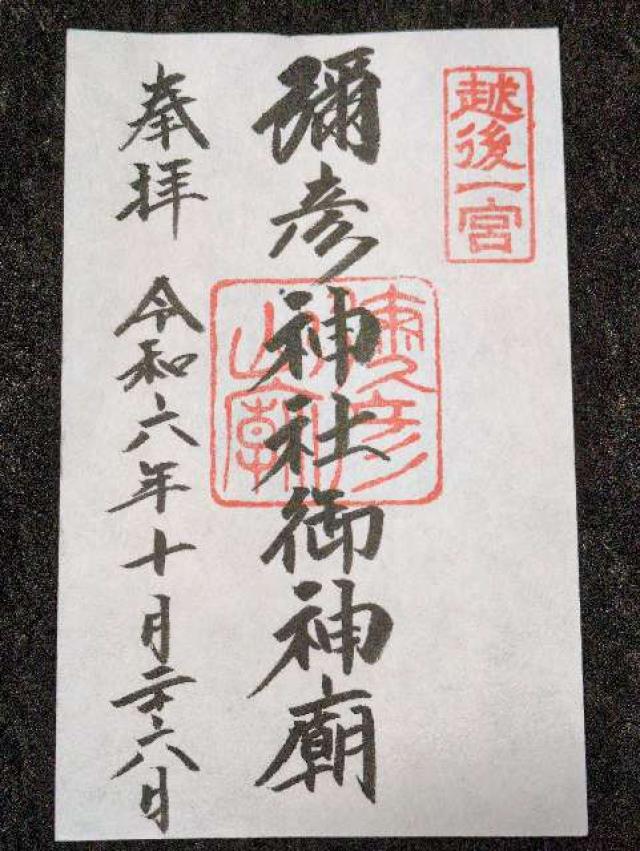 越後一宮
彌彦神社御神廟
奉拝 令和六年十月二十六日